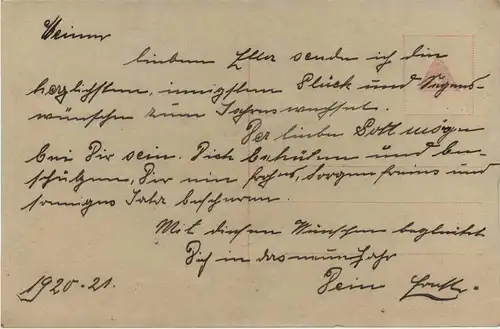 Meiner
lieben Ella sende ich die
herzlichsten, innigsten Glück und Segens-
wünsche zum Jahreswechsel.
Der liebe Gott möge
bei Dir sein. Dich behüten und be-
schützen, Dir ein frohes, sorgenfreies und
sonniges Jahr bescheren.
Mit diesen Wünschen begleitet
Dich in das neue Jahr
Dein
1920-21.